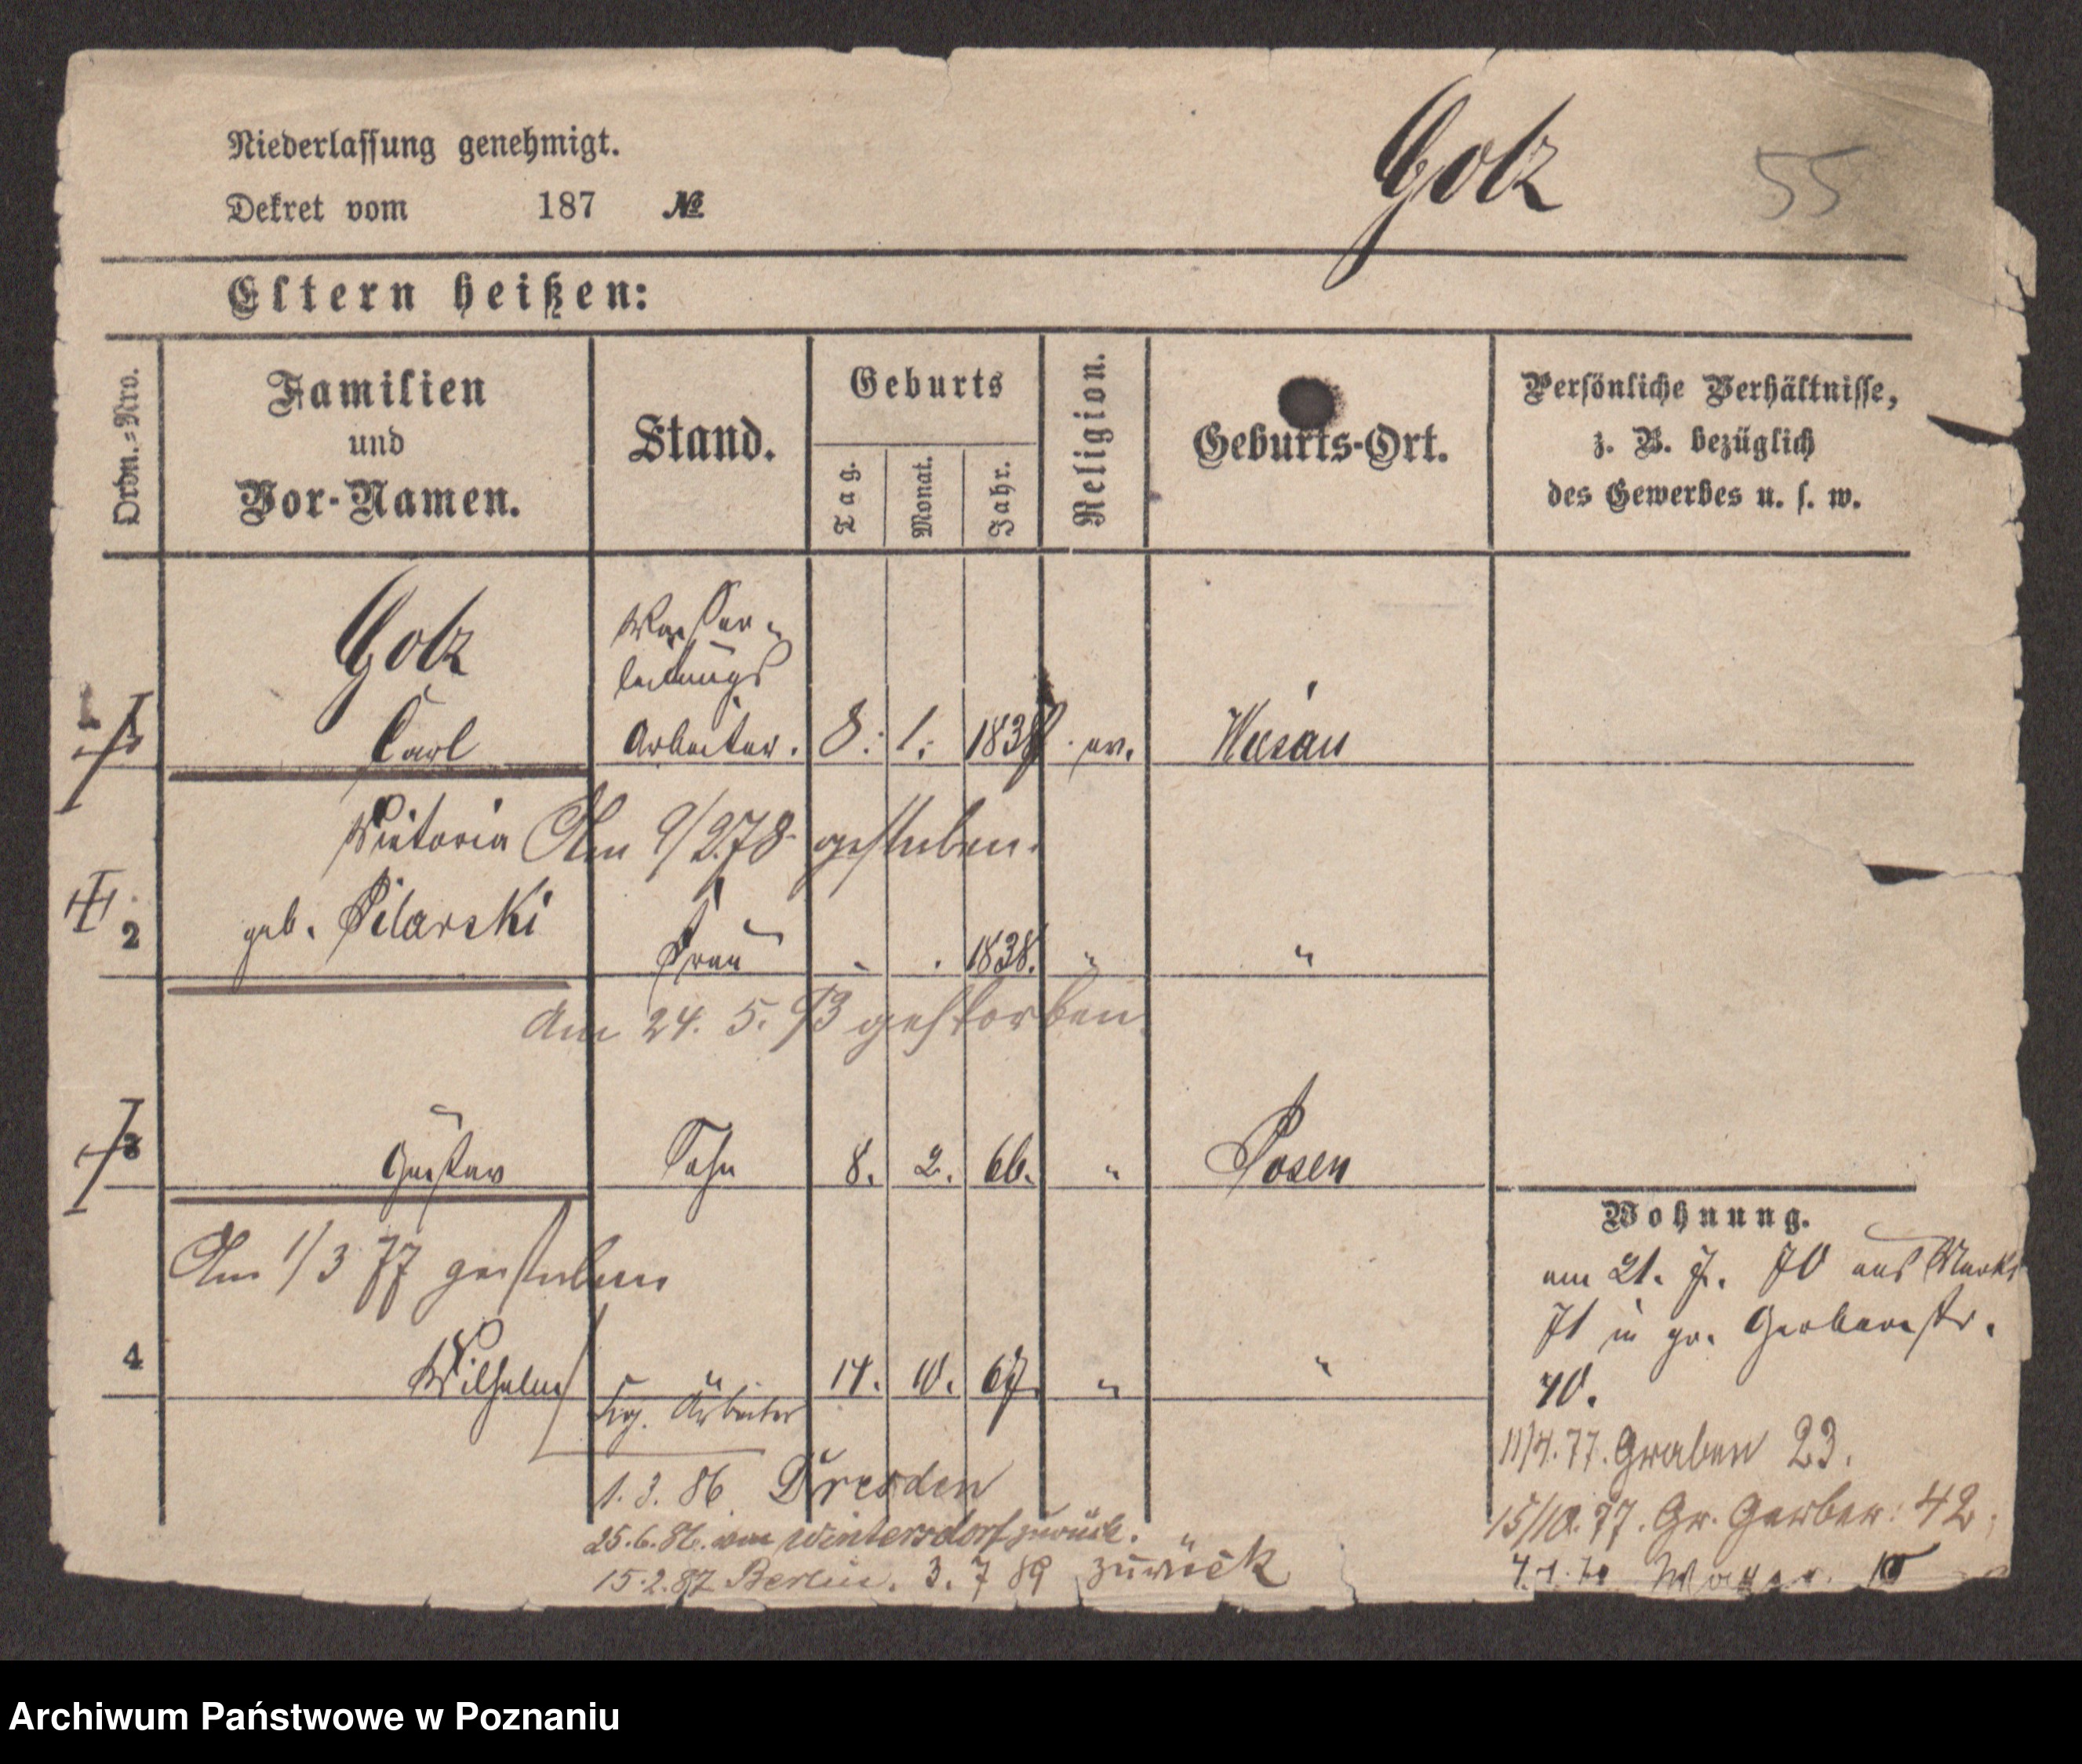 Niederlassung genehmigt.
Dekret vom 187 №
Golz 55
Eltern heißen:
Ordn.-Nro.
Familien
und
Vor-Namen.
Stand.
Geburts
Tag. Monat. Jahr.
Religion.
Geburts-Ort.
Persönliche Verhältnisse,
z. B. bezüglich
des Gewerbes u. s. w.
Golz
Wasser-
leitungs
1 Carl Arbeiter. 8. 1. ev.
Victoria Am 9/2.78 gestorben.
2 geb. Pilarski
Frau 1838. " "
Am 24. 5. 93 gestorben.
3 Gustav Sohn 8. 2. 66. " Posen
Am 1/3 77 gestorben
4 Wilhelm " 10. 67. " "
Arbeiter
1. 3. 86. Dresden
25.6.86. von Wintersdorf zurück.
15.2.87 Berlin. 3. 7 89 zurück
Wohnung.
am 21. 7. 70 aus Markt
71 in gr. Gerberstr.
40.
11/4. 77. Graben 23.
15/10. 77. Gr. Gerber: 42.
Archiwum Państwowe w Poznaniu